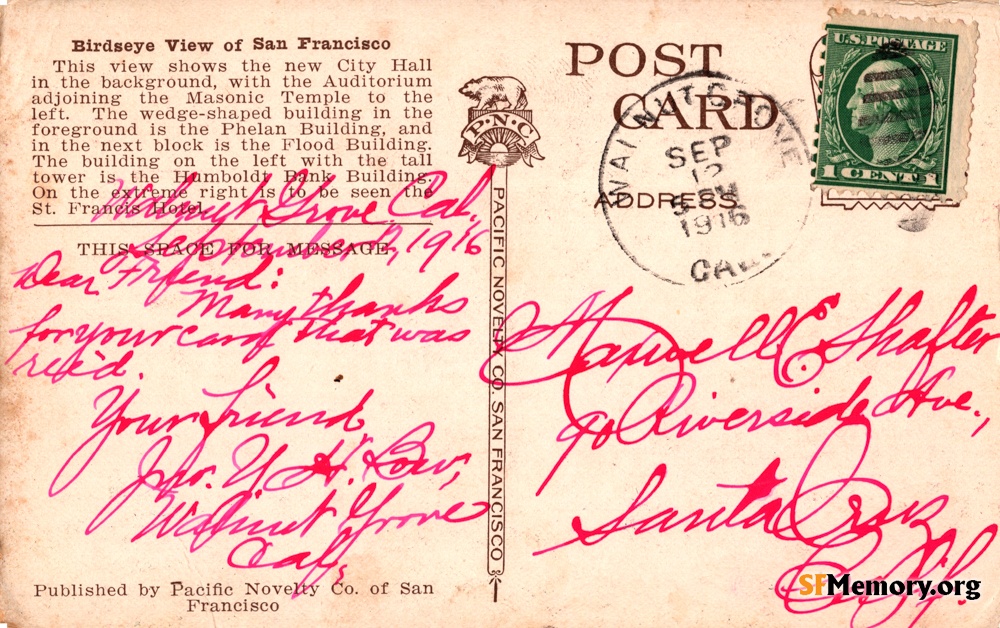 Birdseye View of San Francisco
This view shows the new City Hall
in the background, with the Auditorium
adjoining the Masonic Temple to the
left. The wedge-shaped building in the
foreground is the Phelan Building, and
in the next block is the Flood Building.
The building on the left with the tall
tower is the Humboldt Bank Building.
On the extreme right is to be seen the
St. Francis Hotel.
THIS SPACE FOR MESSAGE
Walnut Grove Cal.,
September 12, 1916
Dear Friend:
Many thanks
for your card that was
rec'd.
Your Friend
Jno. H.
Walnut Grove
Calf.
Published by Pacific Novelty Co. of San
Francisco
P·N·C
PACIFIC NOVELTY CO. SAN FRANCISCO
POST
CARD
ADDRESS
WALNUT GROVE
SEP
12
PM
1916
CAL.
U.S. POSTAGE
1 CENT 1
Maxwell E. Shafter
90 Riverside Ave.,
Santa Cruz
Calf.
SFMemory.org